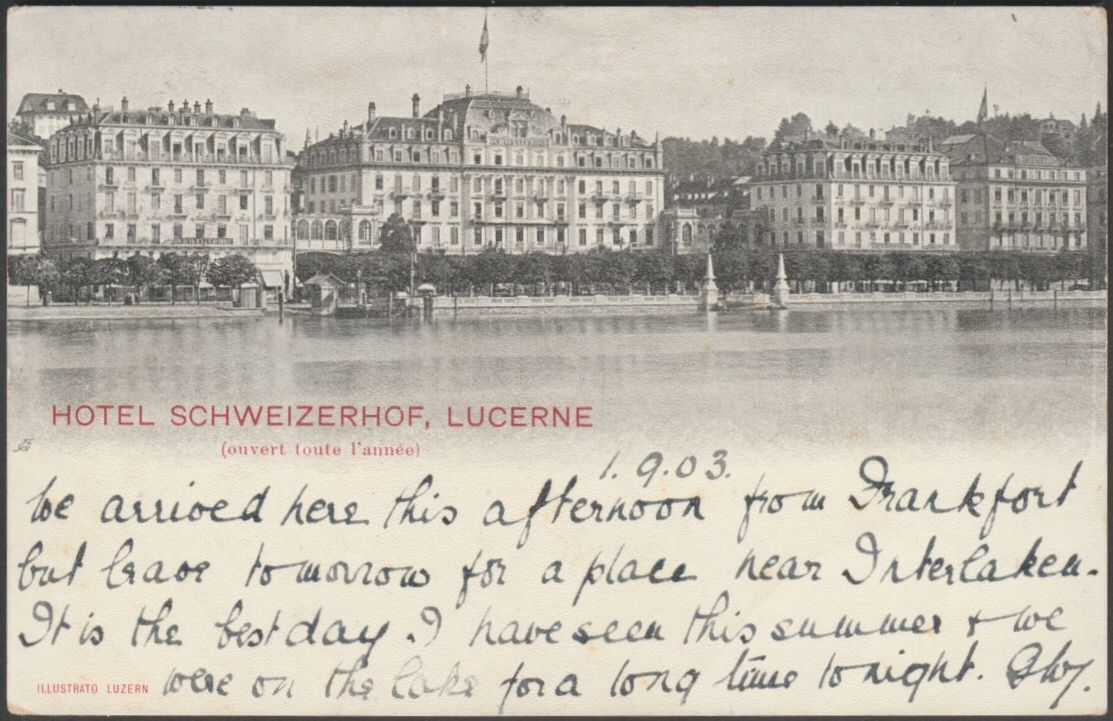 SCHWEIZERHOF
SCHWEIZERHOF
HOTEL SCHWEIZERHOF, LUCERNE
(ouvert toute l'année)
1.9.03.
We arrived here this afternoon from Frankfort
but leave tomorrow for a place near Interlaken.
It is the best day I have seen this summer + we
were on the lake for a long time tonight.
ILLUSTRATO LUZERN